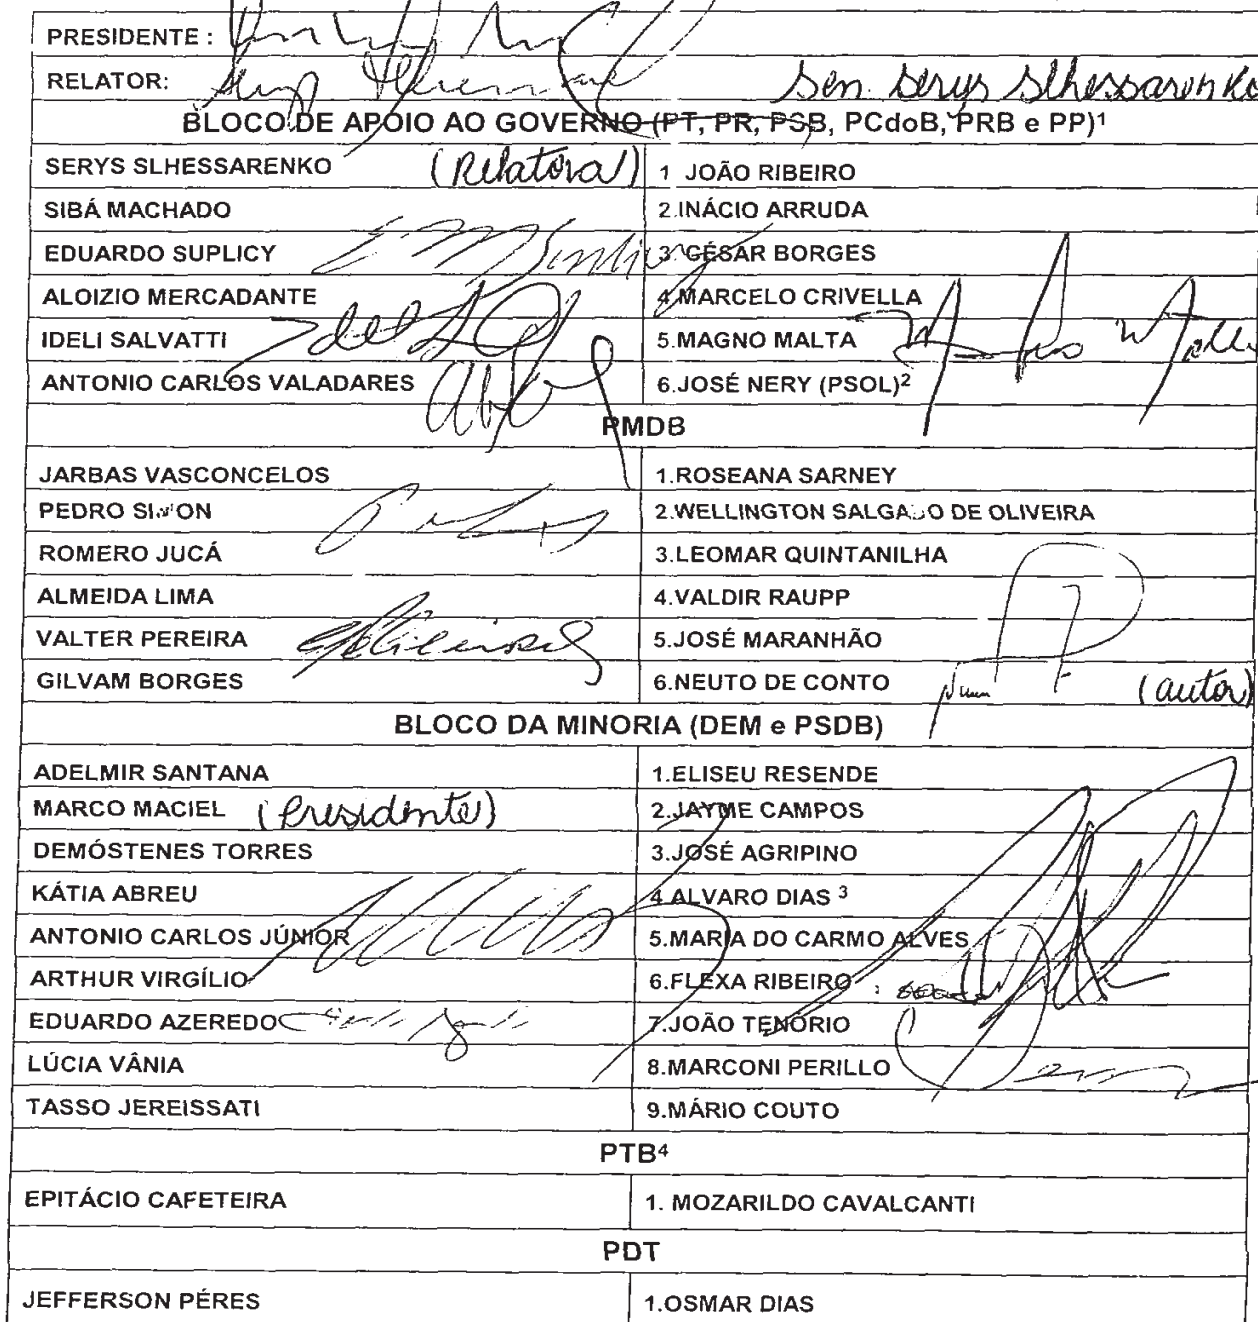 PRESIDENTE :
RELATOR: Sen. Serys Slhessarenko
BLOCO DE APOIO AO GOVERNO (PT, PR, PSB, PCdoB, PRB e PP)¹
SERYS SLHESSARENKO (Relatora) 1 JOÃO RIBEIRO
SIBÁ MACHADO 2.INÁCIO ARRUDA
EDUARDO SUPLICY 3.CÉSAR BORGES
ALOIZIO MERCADANTE 4.MARCELO CRIVELLA
IDELI SALVATTI 5.MAGNO MALTA
ANTONIO CARLOS VALADARES 6.JOSÉ NERY (PSOL)²
PMDB
JARBAS VASCONCELOS 1.ROSEANA SARNEY
PEDRO SIMON 2.WELLINGTON SALGADO DE OLIVEIRA
ROMERO JUCÁ 3.LEOMAR QUINTANILHA
ALMEIDA LIMA 4.VALDIR RAUPP
VALTER PEREIRA 5.JOSÉ MARANHÃO
GILVAM BORGES 6.NEUTO DE CONTO (autor)
BLOCO DA MINORIA (DEM e PSDB)
ADELMIR SANTANA 1.ELISEU RESENDE
MARCO MACIEL (Presidente) 2.JAYME CAMPOS
DEMÓSTENES TORRES 3.JOSÉ AGRIPINO
KÁTIA ABREU 4.ALVARO DIAS ³
ANTONIO CARLOS JÚNIOR 5.MARIA DO CARMO ALVES
ARTHUR VIRGÍLIO 6.FLEXA RIBEIRO
EDUARDO AZEREDO 7.JOÃO TENÓRIO
LÚCIA VÂNIA 8.MARCONI PERILLO
TASSO JEREISSATI 9.MÁRIO COUTO
PTB⁴
EPITÁCIO CAFETEIRA 1. MOZARILDO CAVALCANTI
PDT
JEFFERSON PÉRES 1.OSMAR DIAS